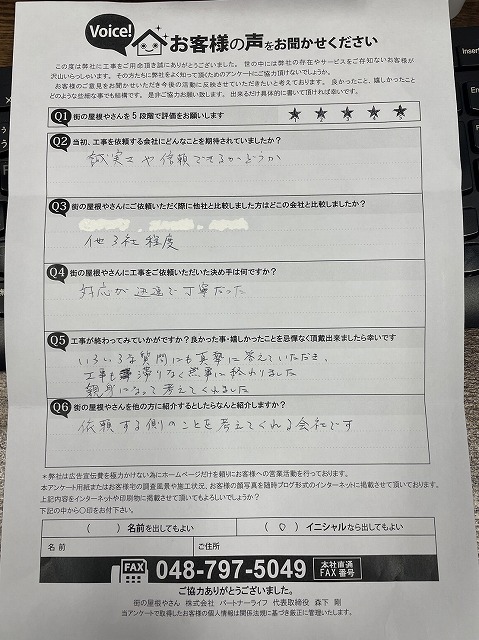 Voice!
お客様の声をお聞かせください
この度は弊社に工事をご用命頂き誠にありがとうございました。世の中には弊社の存在やサービスをご存知ないお客様が
沢山いらっしゃいます。その方たちに弊社をよく知って頂くためのアンケートにご協力頂けないでしょうか。
お客様のご意見をお聞かせいただき今後の活動に反映させていただきたいと考えております。良かったこと、嬉しかったこと
どのような些細な事でも結構です。是非ご協力お願い致します。出来るだけ具体的に書いて頂ければ幸いです。
Q1 街の屋根やさんを5段階で評価をお願いします ★ ★ ★ ★ ★
1 2 3 4 5
Q2 当初、工事を依頼する会社にどんなことを期待されていましたか?
誠実さや信頼できるかどうか
Q3 街の屋根やさんにご依頼いただく際に他社と比較しました方はどこの会社と比較しましたか?
他3社程度
Q4 街の屋根やさんに工事をご依頼いただいた決め手は何ですか?
対応が迅速で丁寧だった
Q5 工事が終わってみていかがですか?良かった事・嬉しかったことを忌憚なく頂戴出来ましたら幸いです
いろいろな質問にも真摯に答えていただき、
工事も滞りなく無事に終わりました
親身になって考えてくれました
Q6 街の屋根やさんを他の方に紹介するとしたらなんと紹介しますか?
依頼する側のことを考えてくれる会社です
*弊社は広告宣伝費を極力かけない為にホームページだけを頼りにお客様への営業活動を行っております。
本アンケート用紙またはお客様宅の調査風景や施工状況、お客様の顔写真を随時ブログ形式のインターネットに掲載させて頂いております。
上記内容をインターネットや印刷物に掲載させて頂いてもよろしいでしょうか?
下記の中から〇印をお付下さい。
( ) 名前を出してもよい ( 〇 ) イニシャルなら出してもよい
名前 ご住所
FAX 048-797-5049 本社直通 FAX番号
ご協力ありがとうございました。
街の屋根やさん 株式会社 パートナーライフ 代表取締役 森下 剛
当アンケートで取得したお客様の個人情報は関係法規に基づき厳正に管理いたします。
Insert